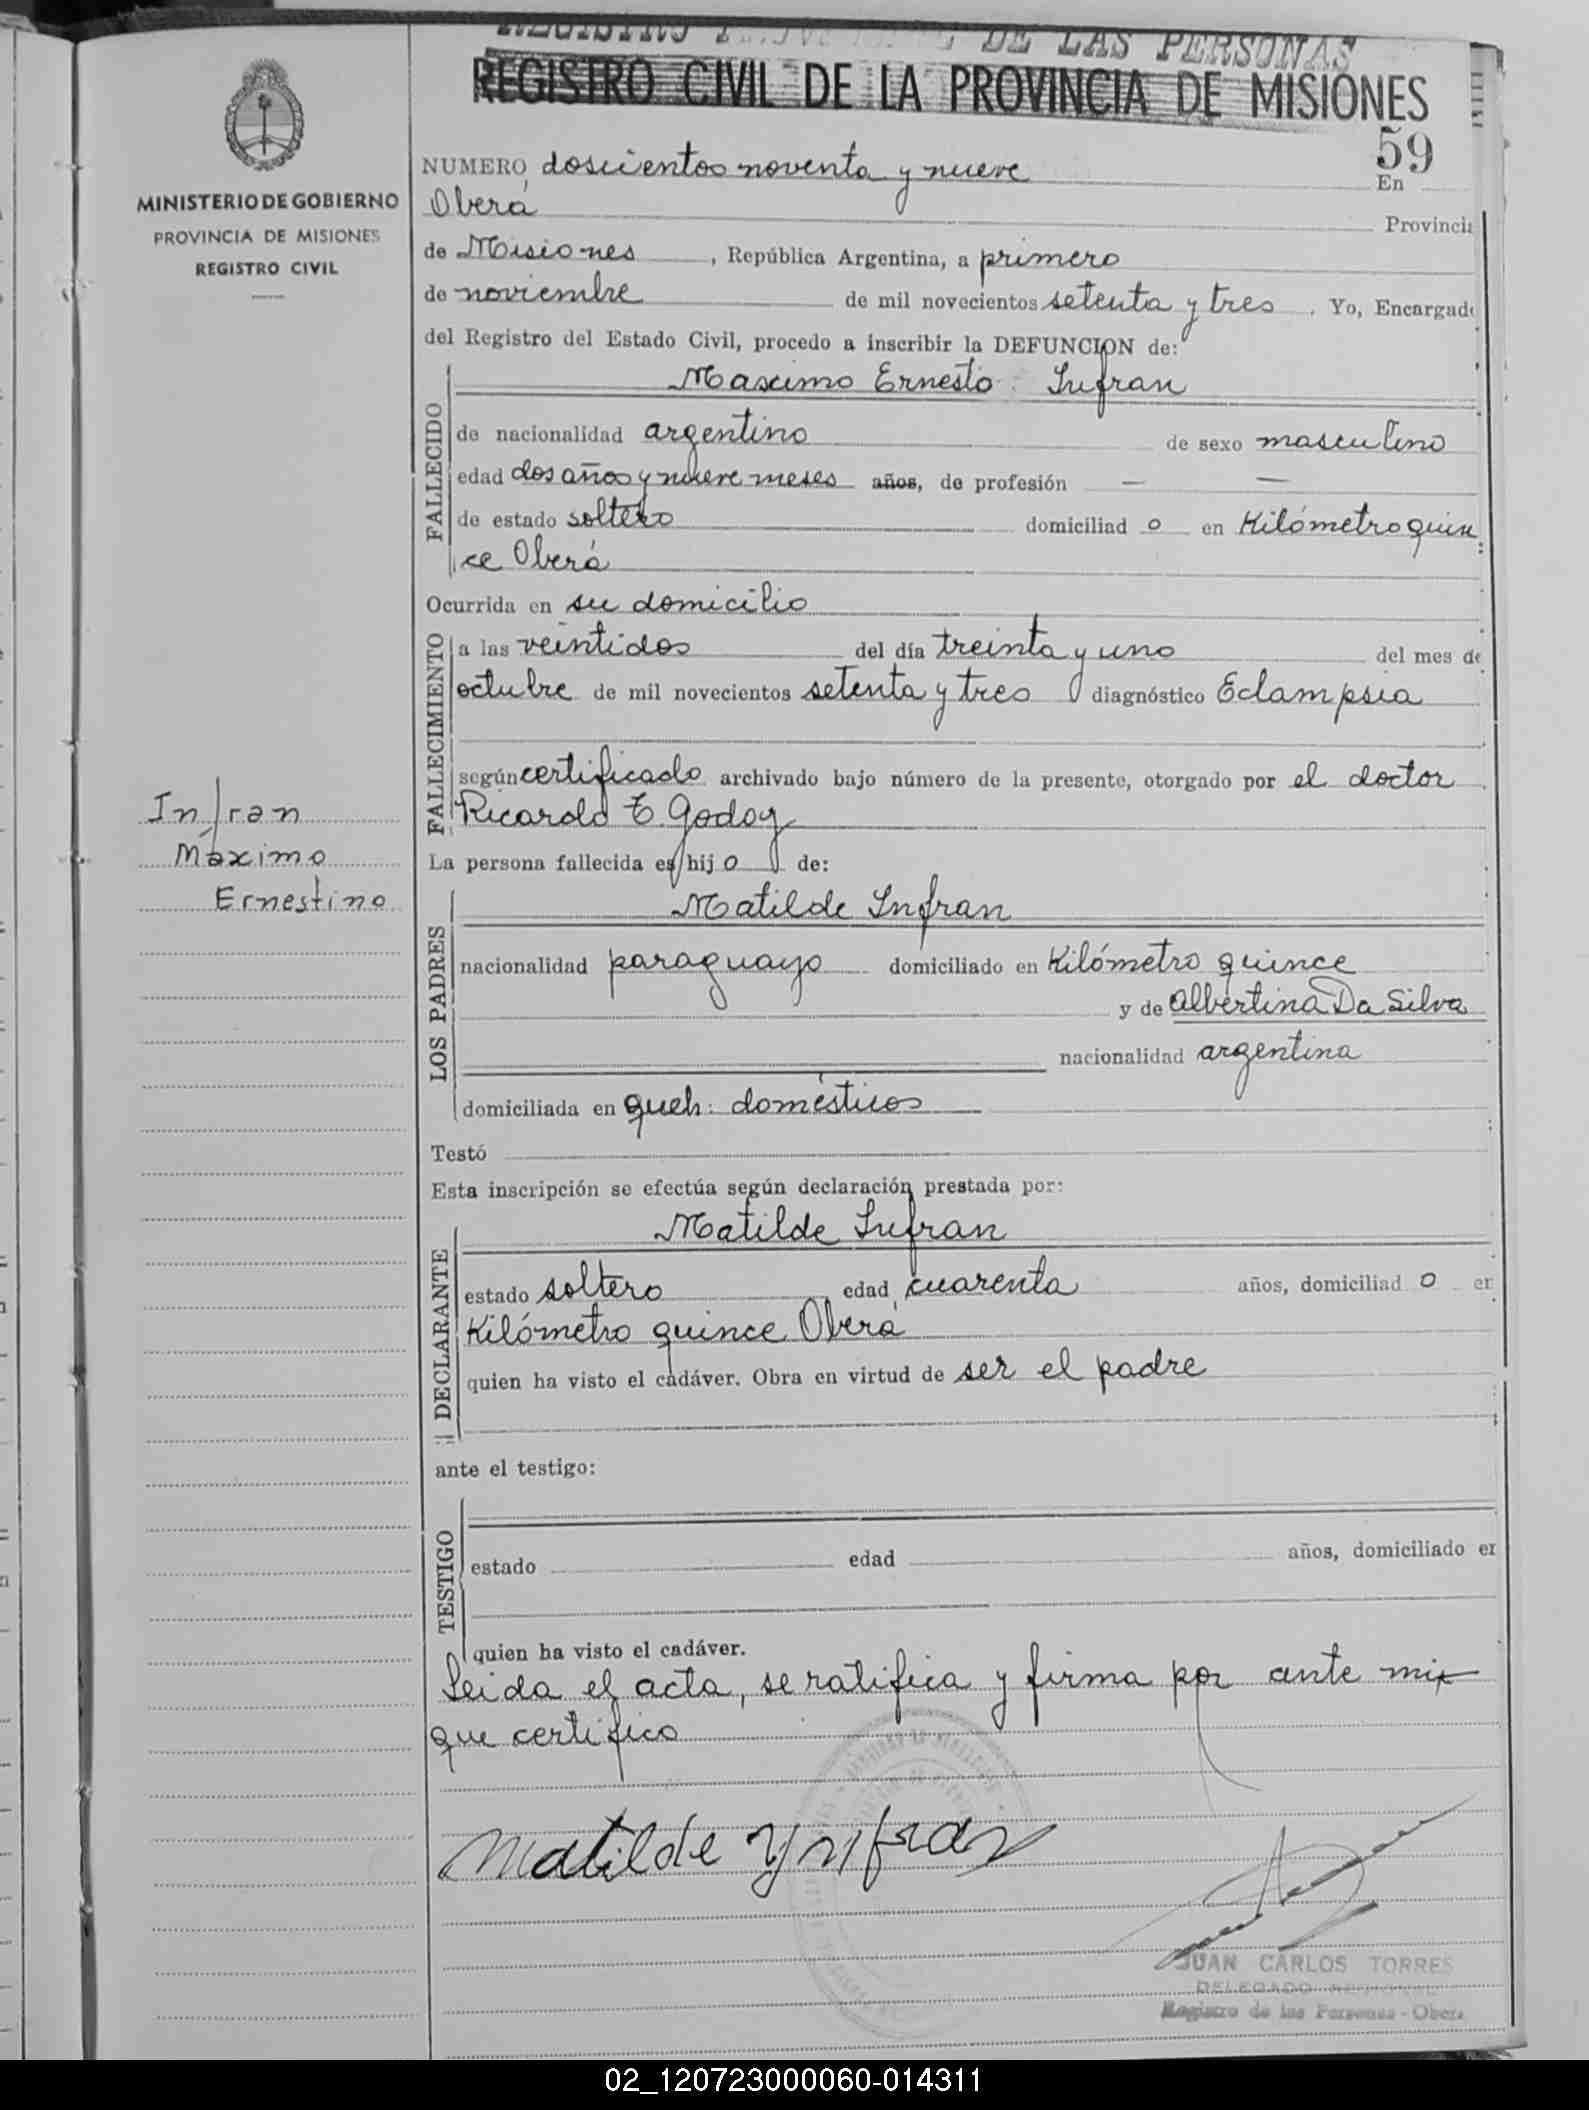 REGISTRO DE LAS PERSONAS
REGISTRO CIVIL DE LA PROVINCIA DE MISIONES
59
MINISTERIO DE GOBIERNO
PROVINCIA DE MISIONES
REGISTRO CIVIL
NUMERO doscientos noventa y nueve En
Oberá Provincia
de Misiones, República Argentina, a primero
de noviembre de mil novecientos setenta y tres. Yo, Encargado
del Registro del Estado Civil, procedo a inscribir la DEFUNCION de:
Maximo Ernesto Infran
FALLECIDO
de nacionalidad argentino de sexo masculino
edad dos años y nueve meses años, de profesión — —
de estado soltero domiciliad o en Kilómetro quin
ce Oberá
Ocurrida en su domicilio
FALLECIMIENTO
a las veintidos del día treinta y uno del mes de
octubre de mil novecientos setenta y tres diagnóstico Eclampsia
según certificado archivado bajo número de la presente, otorgado por el doctor
Ricardo E. Godoy
Infran
Máximo
Ernestino
La persona fallecida es hij o de:
Matilde Infran
LOS PADRES
nacionalidad paraguayo domiciliado en Kilómetro quince
y de Albertina Da Silva
nacionalidad argentina
domiciliada en queh. domésticos
Testó
Esta inscripción se efectúa según declaración prestada por:
Matilde Infran
DECLARANTE
estado soltero edad cuarenta años, domiciliad o en
Kilómetro quince Oberá
quien ha visto el cadáver. Obra en virtud de ser el padre
ante el testigo:
TESTIGO
estado edad años, domiciliado en
quien ha visto el cadáver.
Leida el acta, se ratifica y firma por ante mi
que certifico
Matilde Ynfran
JUAN CARLOS TORRES
DELEGADO REGIONAL
Registro de las Personas - Oberá
02_120723000060-014311